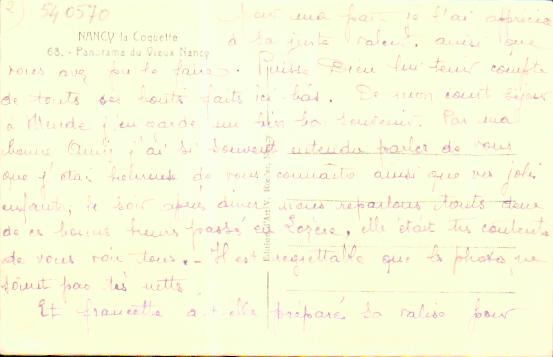 2) 540570
NANCY la Coquette
68. - Panorama du Vieux Nancy
Pour ma part je l'ai apprécié
à sa juste valeur, ainsi que
vous avez pu le faire. Puisse Dieu lui tenir compte
de touts ses bonts faits ici bas. De mon court séjour
à Mende j'en garde un bien bon souvenir. Par ma
bonne Amie j'ai si souvent entendu parler de vous
que j'étai heureuse de vous connaître ainsi que vos jolis
enfants, le soir après diner nous reparlons touts deux
de ces bonnes heures passé en Lozère, elle était très contente
de vous voir tous. - Il est regrettable que les photos ne
soient pas très nettes
Et francette a t elle préparé sa valise pour